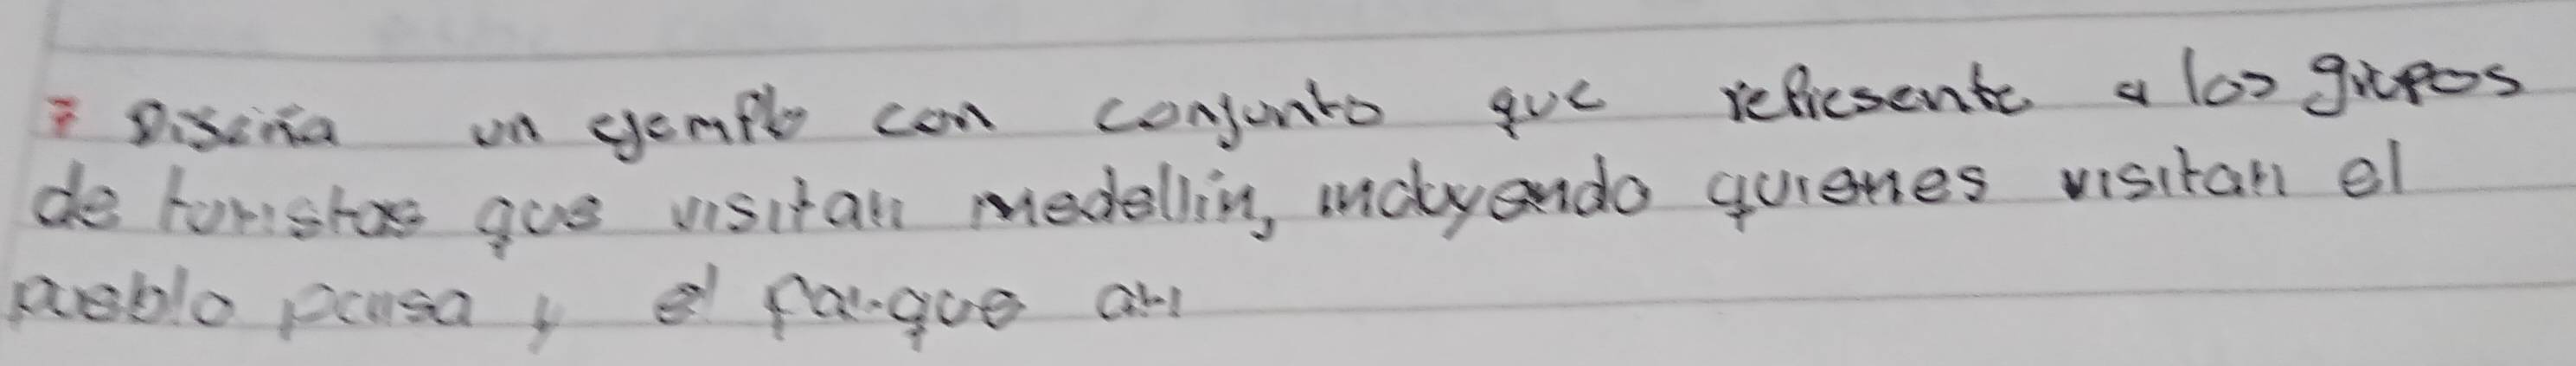 7 Diseña un ejemplo con conjunto que represente a los grupos
de turistas que visitan medellín, incluyendo quienes visitan el
pueblo paisa y el parque arvi